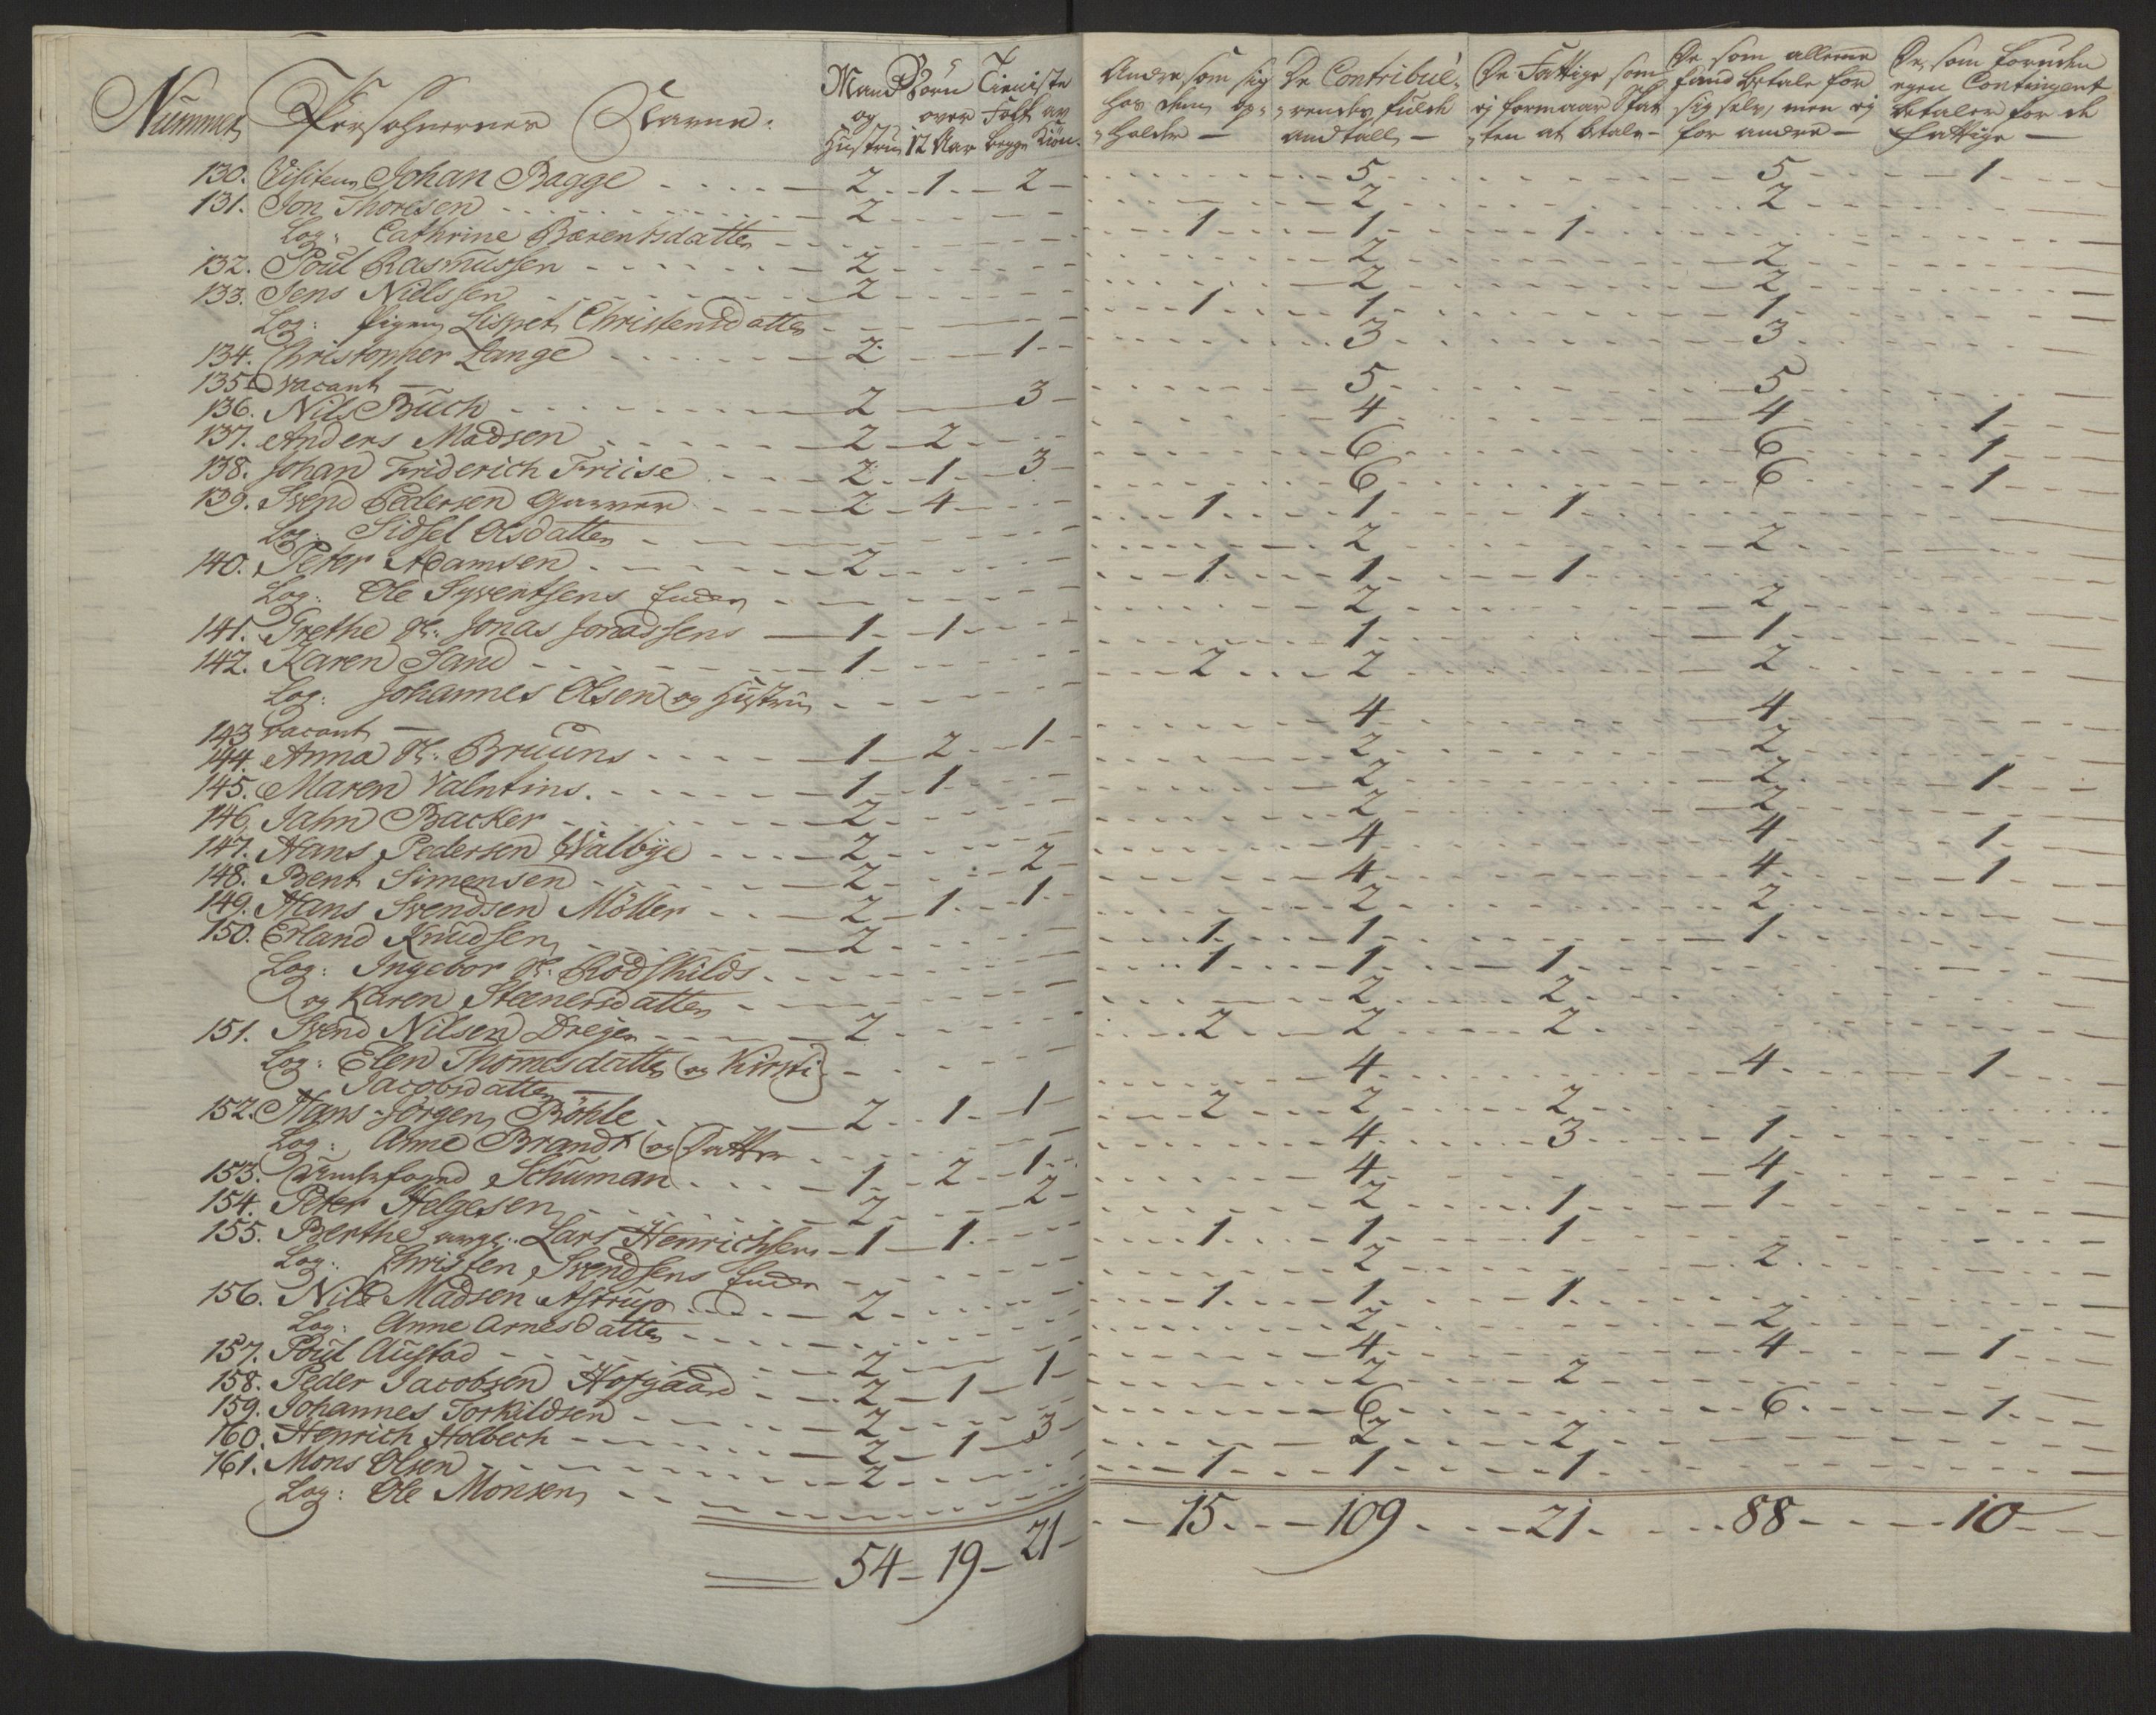 Nummer Persohnernes Navne. Mand og Hustru Börn over 12 Aar Tieniste Folk av begge Kiön. Andre som sig hos dem op-holder De Contribue-rendes fulde Andtall De Fattige som ej formaar Skatten at betale De som allene kand betale for sig selv, men ej for andre De, som foruden egen Contingent betaler for de Fattige
130. Visiteur Johan Bagge 2 1 2 5 5 1
131. Jon Thoresen 2 2 2
Log: Cathrine Bærentsdatter 1 1 1
132. Poul Rasmussen 2 2 2
133. Jens Nielssen 2 2 2
Log: Pigen Lispet Christensdatter 1 1 1
134. Christopher Lange 2 1 3 3
135. vacant
136. Nils Buch 2 3 5 5
137. Anders Madsen 2 2 4 4 1
138. Johan Friderich Friise 2 1 3 6 6 1
139. Svend Pedersen Garver 2 4 6 6 1
Log: Sidsel Olsdatter 1 1 1
140. Peter Adamsen 2 2 2
Log: Ole Syvertsens Enke 1 1 1
141. Grethe Sl: Jonas Jonassens 1 1 2 2
142. Karen Sand 1 1 1
Log: Johannes Olsen og Hustru 2 2 2
143 vacant
144. Anna Sl: Bruuns 1 2 1 4 4
145. Maren Valntins. 1 1 2 2
146. Jahn Backer 2 2 2 1
147. Hans Pedersen Walbye 2 2 2
148. Bent Simensen 2 2 4 4 1
149. Hans Svendsen Möller 2 1 1 4 4 1
150. Erland Knudsen 2 2 2
Log: Ingebor Sl: Rodskilds 1 1 1
og Karen Steenersdatter 1 1 1
151. Svend Nilsen Drejer 2 2 2
Log: Elen Thomesdatter og Kirsti 2 2 2
Jacobsdatter
152. Hans Jörgen Böhle 2 1 1 4 4 1
Log: Anne Brandt og Datter 2 2 2
153. Schuman 1 2 1 4 3 1
154. Peter Helgesen 2 2 4 4
155. Berthe Lars Henrichsens 1 1 2 1 1
Log: Christen Svendsens Enke 1 1 1
156. Nils Madsen Astrup 2 2 2
Log: Anne Arnesdatter 1 1 1
157. Poul Austad 2 2 2
158. Peder Jacobsen Hofgaard 2 1 1 4 4 1
159. Johannes Torkildsen 2 2 2
160. Henrich Holbech 2 1 3 6 6 1
161. Mons Olsen 2 2 2
Log: Ole Monsen 1 1 1
54 19 21 15 109 21 88 10